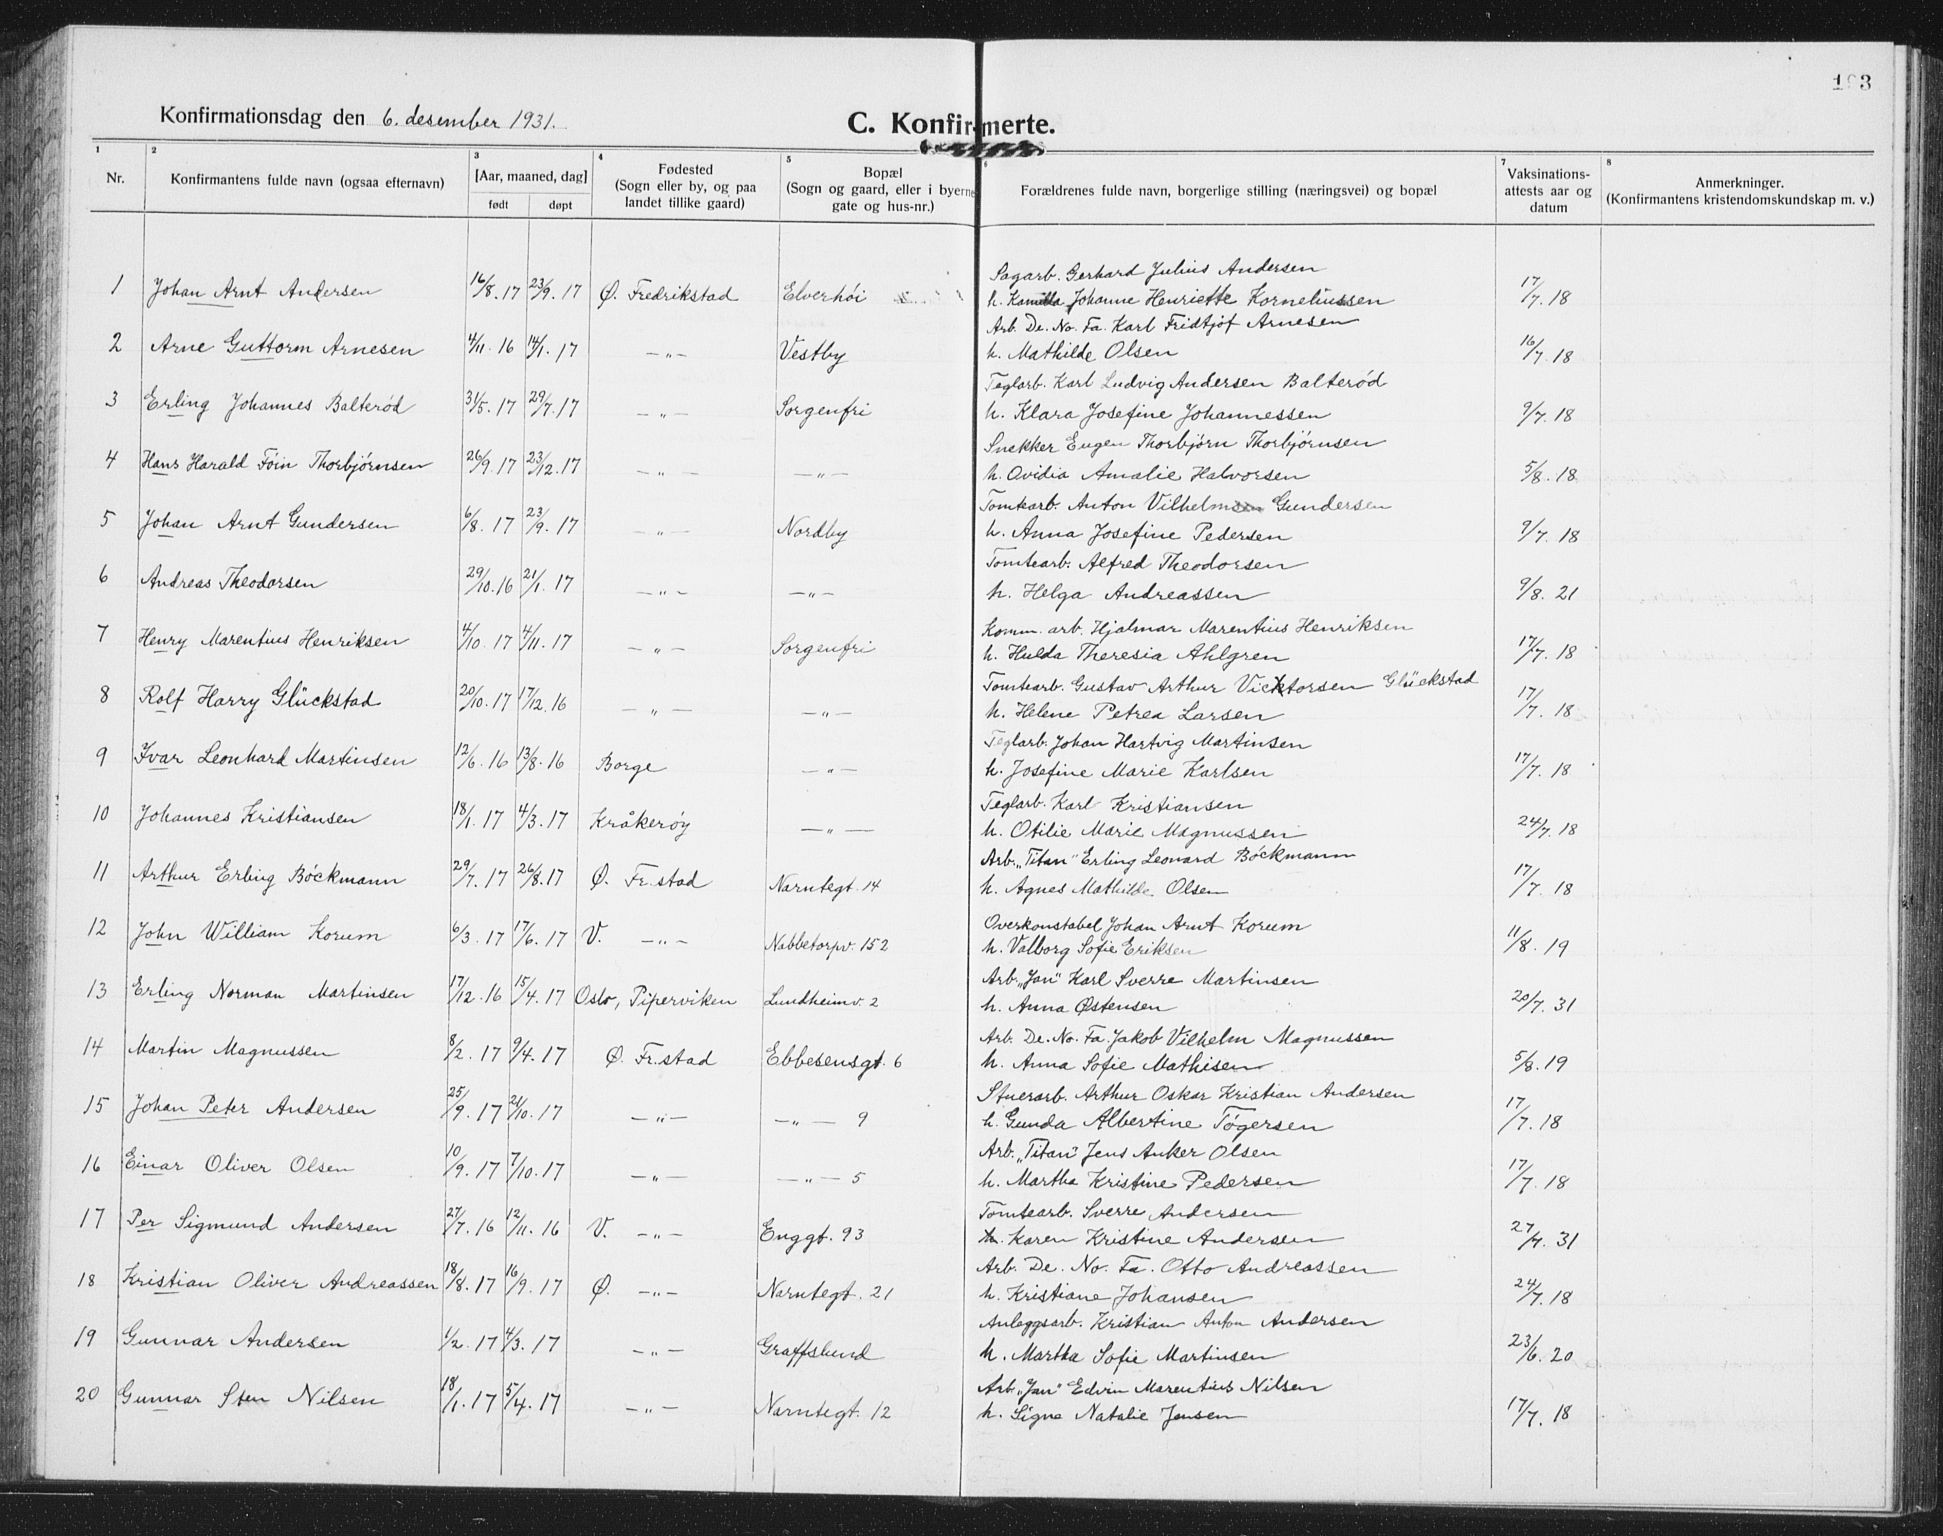 193
Konfirmationsdag den 6. desember 1931.
C. Konfirmerte.
1 2 3 4 5 6 7 8
Nr. Konfirmantens fulde navn (ogsaa efternavn) [Aar, maaned, dag] født døpt Fødested (Sogn eller by, og paa landet tillike gaard) Bopæl (Sogn og gaard, eller i byerne gate og hus-nr.) Forældrenes fulde navn, borgerlige stilling (næringsvei) og bopæl Vaksinations-attests aar og datum Anmerkninger. (Konfirmantens kristendomskundskap m. v.)
Sagarb. Gerhard Julius Andersen
1 Johan Arnt Andersen 16/8.17 23/9.17 Ø. Fredrikstad Elverhöi h. Kamilla Johanne Henriette Korneliussen 17/7.18
Arb. De. No. Fa. Karl Fridtjof Arnesen
2 Arne Guttorm Arnesen 4/11.16 14/1.17 —„— Vestby h. Mathilde Olsen 16/7.18
Teglarb. Karl Ludvig Andersen Balteröd
3 Erling Johannes Balteröd 31/5.17 29/7.17 —„— Sorgenfri h. Klara Josefine Johannessen 9/7.18
Snekker Eugen Thorbjørn Thorbjørnsen
4 Hans Harald Föin Thorbjörnsen 26/9.17 23/12.17 —„— —„— h. Ovidia Amalie Halvorsen 5/8.18
Tomtearb. Anton Vilhelm Gundersen
5 Johan Arnt Gundersen 6/8.17 23/9.17 —„— Nordby h. Anna Josefine Pedersen 9/7.18
Tomtearb. Alfred Theodorsen
6 Andreas Theodorsen 29/10.16 21/1.17 —„— —„— h. Helga Andreassen 9/8.21
Komm. arb. Hjalmar Marentius Henriksen
7 Henry Marentius Henriksen 4/10.17 4/11.17 —„— Sorgenfri h. Hulda Theresia Ahlgren 17/7.18
Tomtearb. Gustav Arthur Vicktorsen Glückstad
8 Rolf Harry Glückstad 20/10.17 17/12.16 —„— —„— h. Helene Petrea Larsen 17/7.18
Teglarb. Johan Hartvig Martinsen
9 Ivar Leonhard Martinsen 12/6.16 13/8.16 Borge —„— h. Josefine Marie Karlsen 17/7.18
Teglarb. Karl Kristiansen
10 Johannes Kristiansen 18/1.17 4/3.17 Kråkeröy —„— h. Otilie Marie Magnussen 24/7.18
Arb. „Titan" Erling Leonard Böckmann
11 Arthur Erling Böckmann 29/7.17 26/8.17 Ø. Fr.stad Narntegt. 14 h. Agnes Mathilde Olsen 17/7.18
Overkonstabel Johan Arnt Korum
12 John William Korum 6/3.17 17/6.17 V. —„— Nabbetorpv. 152 h. Valborg Sofie Eriksen 11/8.19
Arb. „Jan" Karl Sverre Martinsen
13 Erling Norman Martinsen 17/12.16 15/4.17 Oslo, Piperviken Lundheimv. 2 h. Anna Østensen 20/7.31
Arb. De. No. Fa. Jakob Vilhelm Magnussen
14 Martin Magnussen 8/2.17 9/4.17 Ø. Fr.stad Ebbesensgt. 6 h. Anna Sofie Mathisen 5/8.19
Stuerarb. Arthur Oskar Kristian Andersen
15 Johan Peter Andersen 25/9.17 21/10.17 —„— —„— 9 h. Gunda Albertine Tögersen 17/7.18
Arb. „Titan" Jens Anker Olsen
16 Einar Oliver Olsen 10/9.17 7/10.17 —„— —„— 5 h. Martha Kristine Pedersen 17/7.18
Tomtearb. Sverre Andersen
17 Per Sigmund Andersen 27/7.16 12/11.16 V. —„— Enggt. 93 h. Karen Kristine Andersen 27/7.31
Arb. De. No. Fa. Otto Andreassen
18 Kristian Oliver Andreassen 18/8.17 16/9.17 Ø. —„— Narntegt. 21 h. Kristiane Johansen 24/7.18
Anleggsarb. Kristian Anton Andersen
19 Gunnar Andersen 1/2.17 4/3.17 —„— Graffslund h. Martha Sofie Martinsen 23/6.20
Arb. „Jan" Edvin Marentius Nilsen
20 Gunnar Sten Nilsen 18/1.17 5/4.17 —„— Narntegt. 12 h. Signe Natalie Jensen 17/7.18